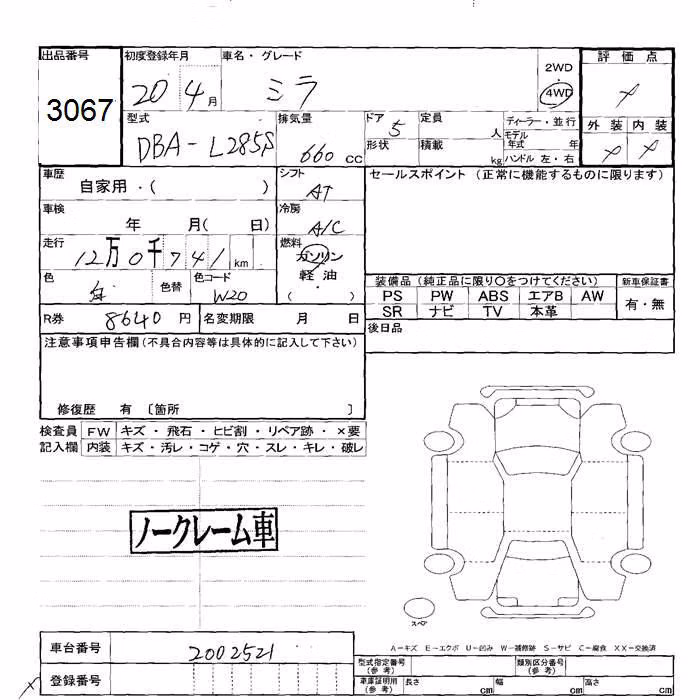 出品番号 初度登録年月 車名・グレード 2WD 評価点
3067 20 4月 ミラ 4WD
型式 排気量 ドア 定員 ディーラー・並行 外装 内装
DBA-L285S 660 CC 5 人 モデル年式 年
形状 積載 kg ハンドル 左・右
車歴 シフト セールスポイント (正常に機能するものに限ります)
自家用・( ) AT
車検 冷房
年 月( 日) A/C
走行 燃料
12万0千741km ガソリン
軽油
( )
色 色替 色コード 装備品 (純正品に限り○をつけてください) 新車保証書
白 W20 PS PW ABS エアB AW 有・無
SR ナビ TV 本革
R券 8640円 名変期限 月 日 後日品
注意事項申告欄(不具合内容等は具体的に記入して下さい)
修復歴 有 〔箇所 〕
検査員 FW キズ・飛石・ヒビ割・リペア跡・×要
記入欄 内装 キズ・汚レ・コゲ・穴・スレ・キレ・破レ
ノークレーム車
スペア
A-キズ E-エクボ U-凹み W-補修跡 S-サビ C-腐食 XX-交換済
車台番号 2002521 型式指定番号(参考) 類別区分番号(参考)
登録番号 車庫証明用(参考) 長さ cm 幅 cm 高さ cm